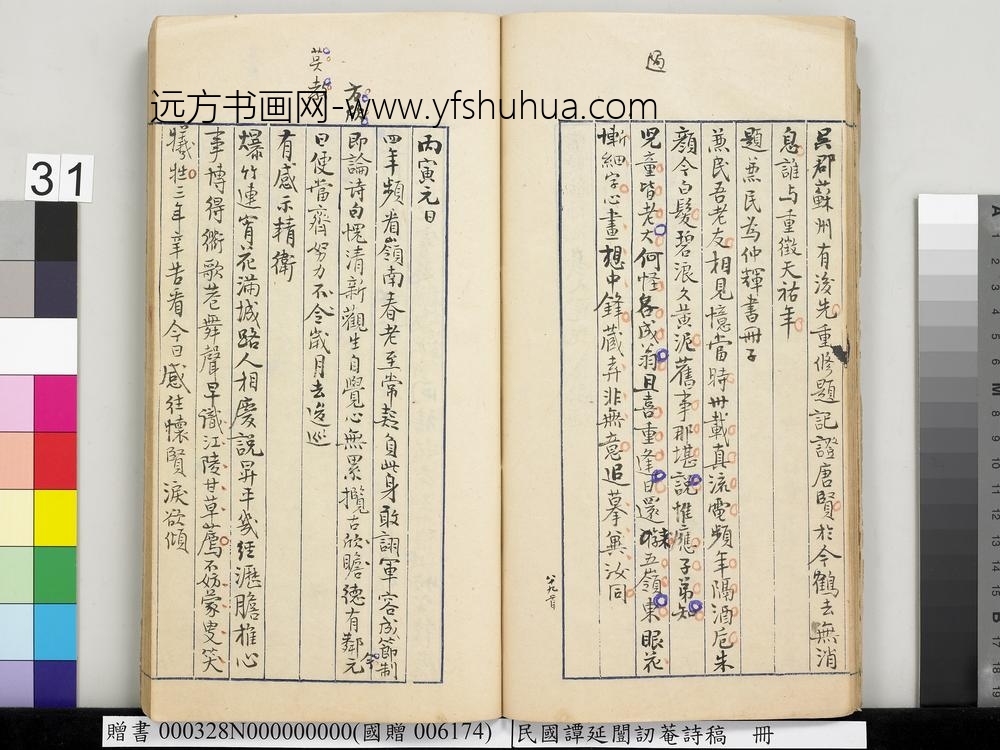 過
吳郡蘇州有後先重修題記證唐賢於今鶴去無消
息誰与重徵天祐年
題兼民為仲輝書冊子
兼民吾老友相見憶當時卅載真流電頻年隔酒卮朱
顏今白髮碧浪久黃泥舊事那堪說惟應子弟知
兒童皆老大何怪各成翁且喜重逢日還來五嶺東眼花
慚細字心畫想中鋒藏弆非無意追摹與汝同
八九首
丙寅元日
四年頻看嶺南春老至常慙負此身敢詡軍容成節制
即論詩句愧清新觀生自覺心無累攬古欣瞻德有鄰元
日便當齊努力不令歲月去逡巡
有感示精衛
爆竹連宵花滿城路人相慶說昇平幾經瀝膽推心
事博得衢歌巷舞聲早識江陵甘草薦不妨蒙叟笑
犧牲三年辛苦看今日感往懷賢淚欲傾
远方书画网-www.yfshuhua.com
31
贈書 000328N000000000(國贈 006174)
民國譚延闓訒菴詩稿 冊